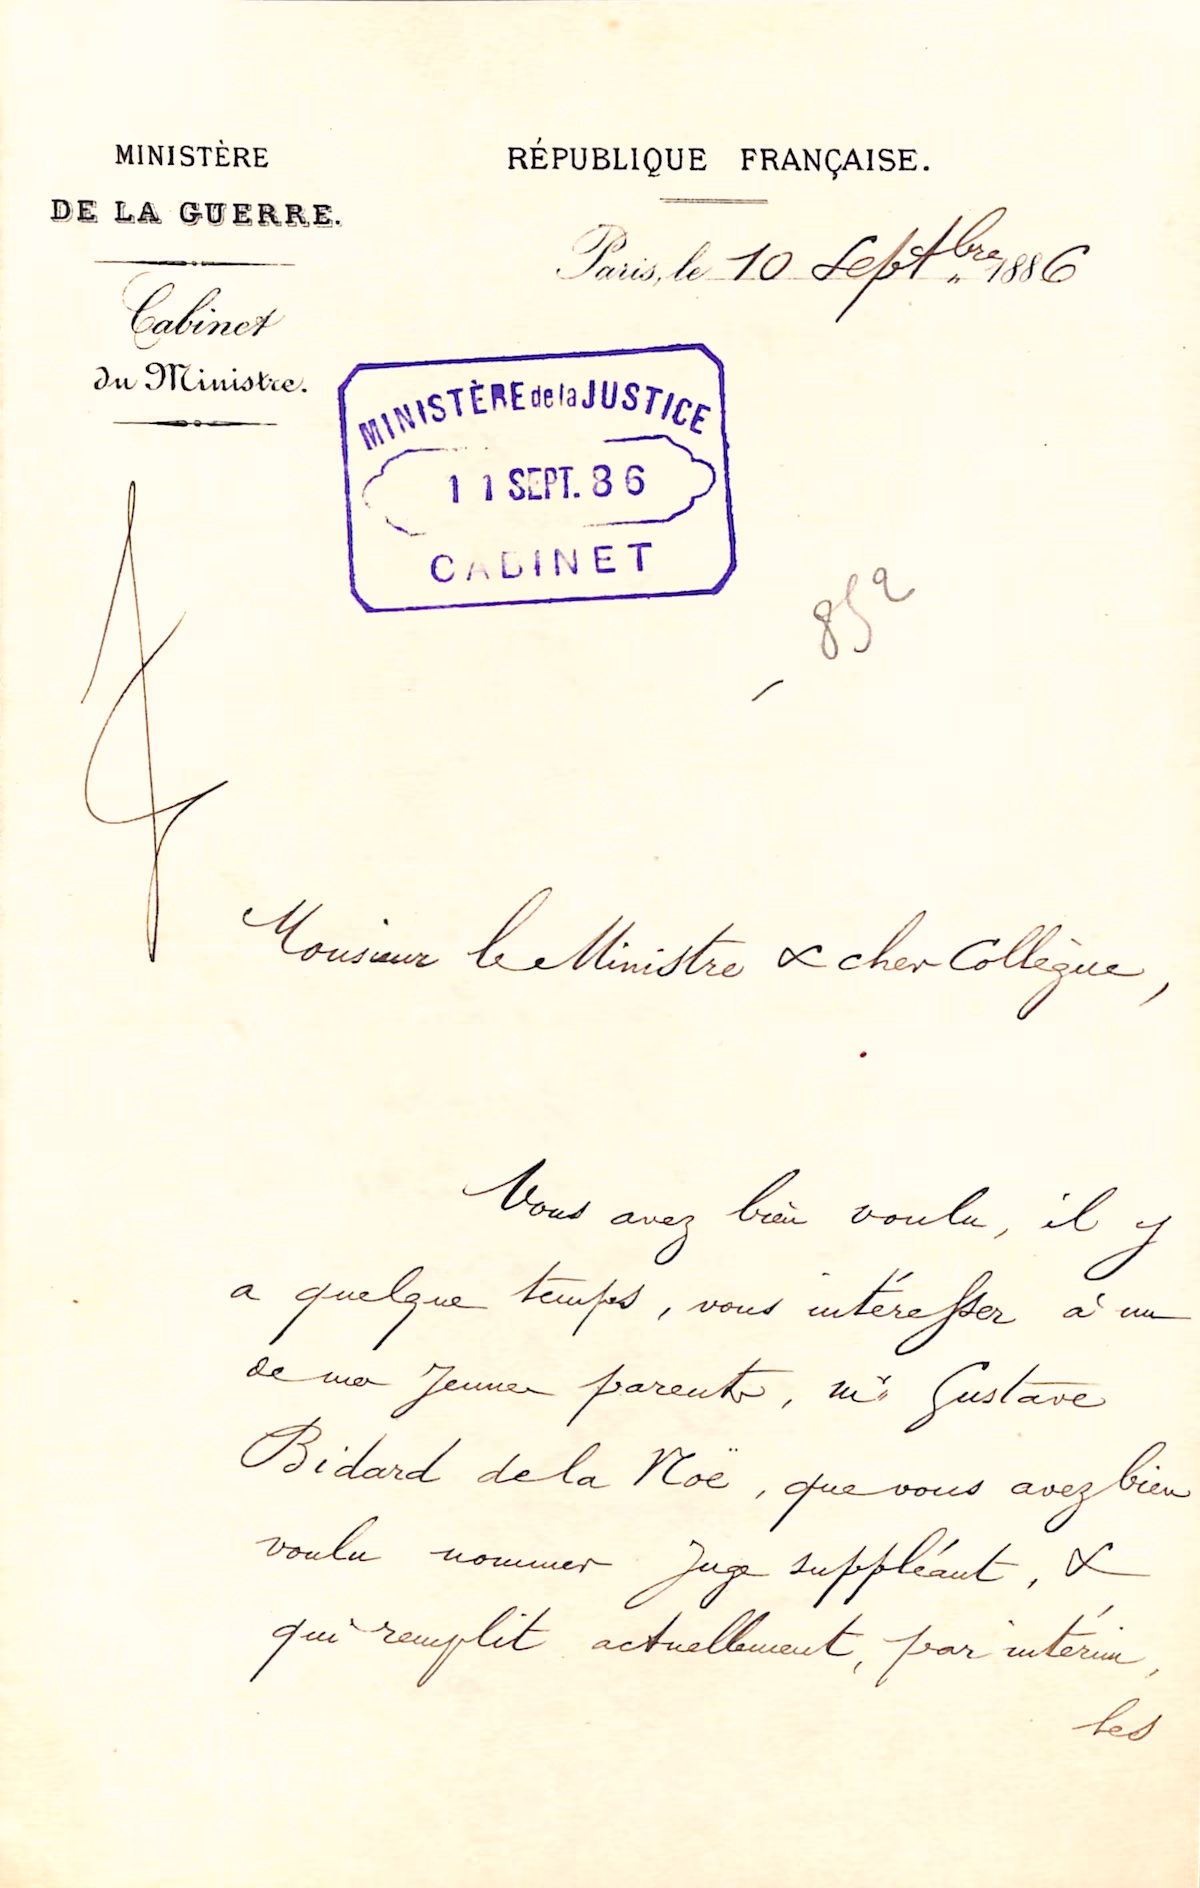 MINISTÈRE
DE LA GUERRE.
Cabinet
du Ministre.
RÉPUBLIQUE FRANÇAISE.
Paris, le 10 Septbre 1886
MINISTÈRE de la JUSTICE
11 SEPT. 86
CABINET
Monsieur le Ministre & cher Collègue,
Vous avez bien voulu, il y
a quelque temps, vous intéresser à un
de mes jeunes parents, Mr. Gustave
Bidard de la Noë, que vous avez bien
voulu nommer Juge suppléant, &
qui remplit actuellement, par intérim,
les